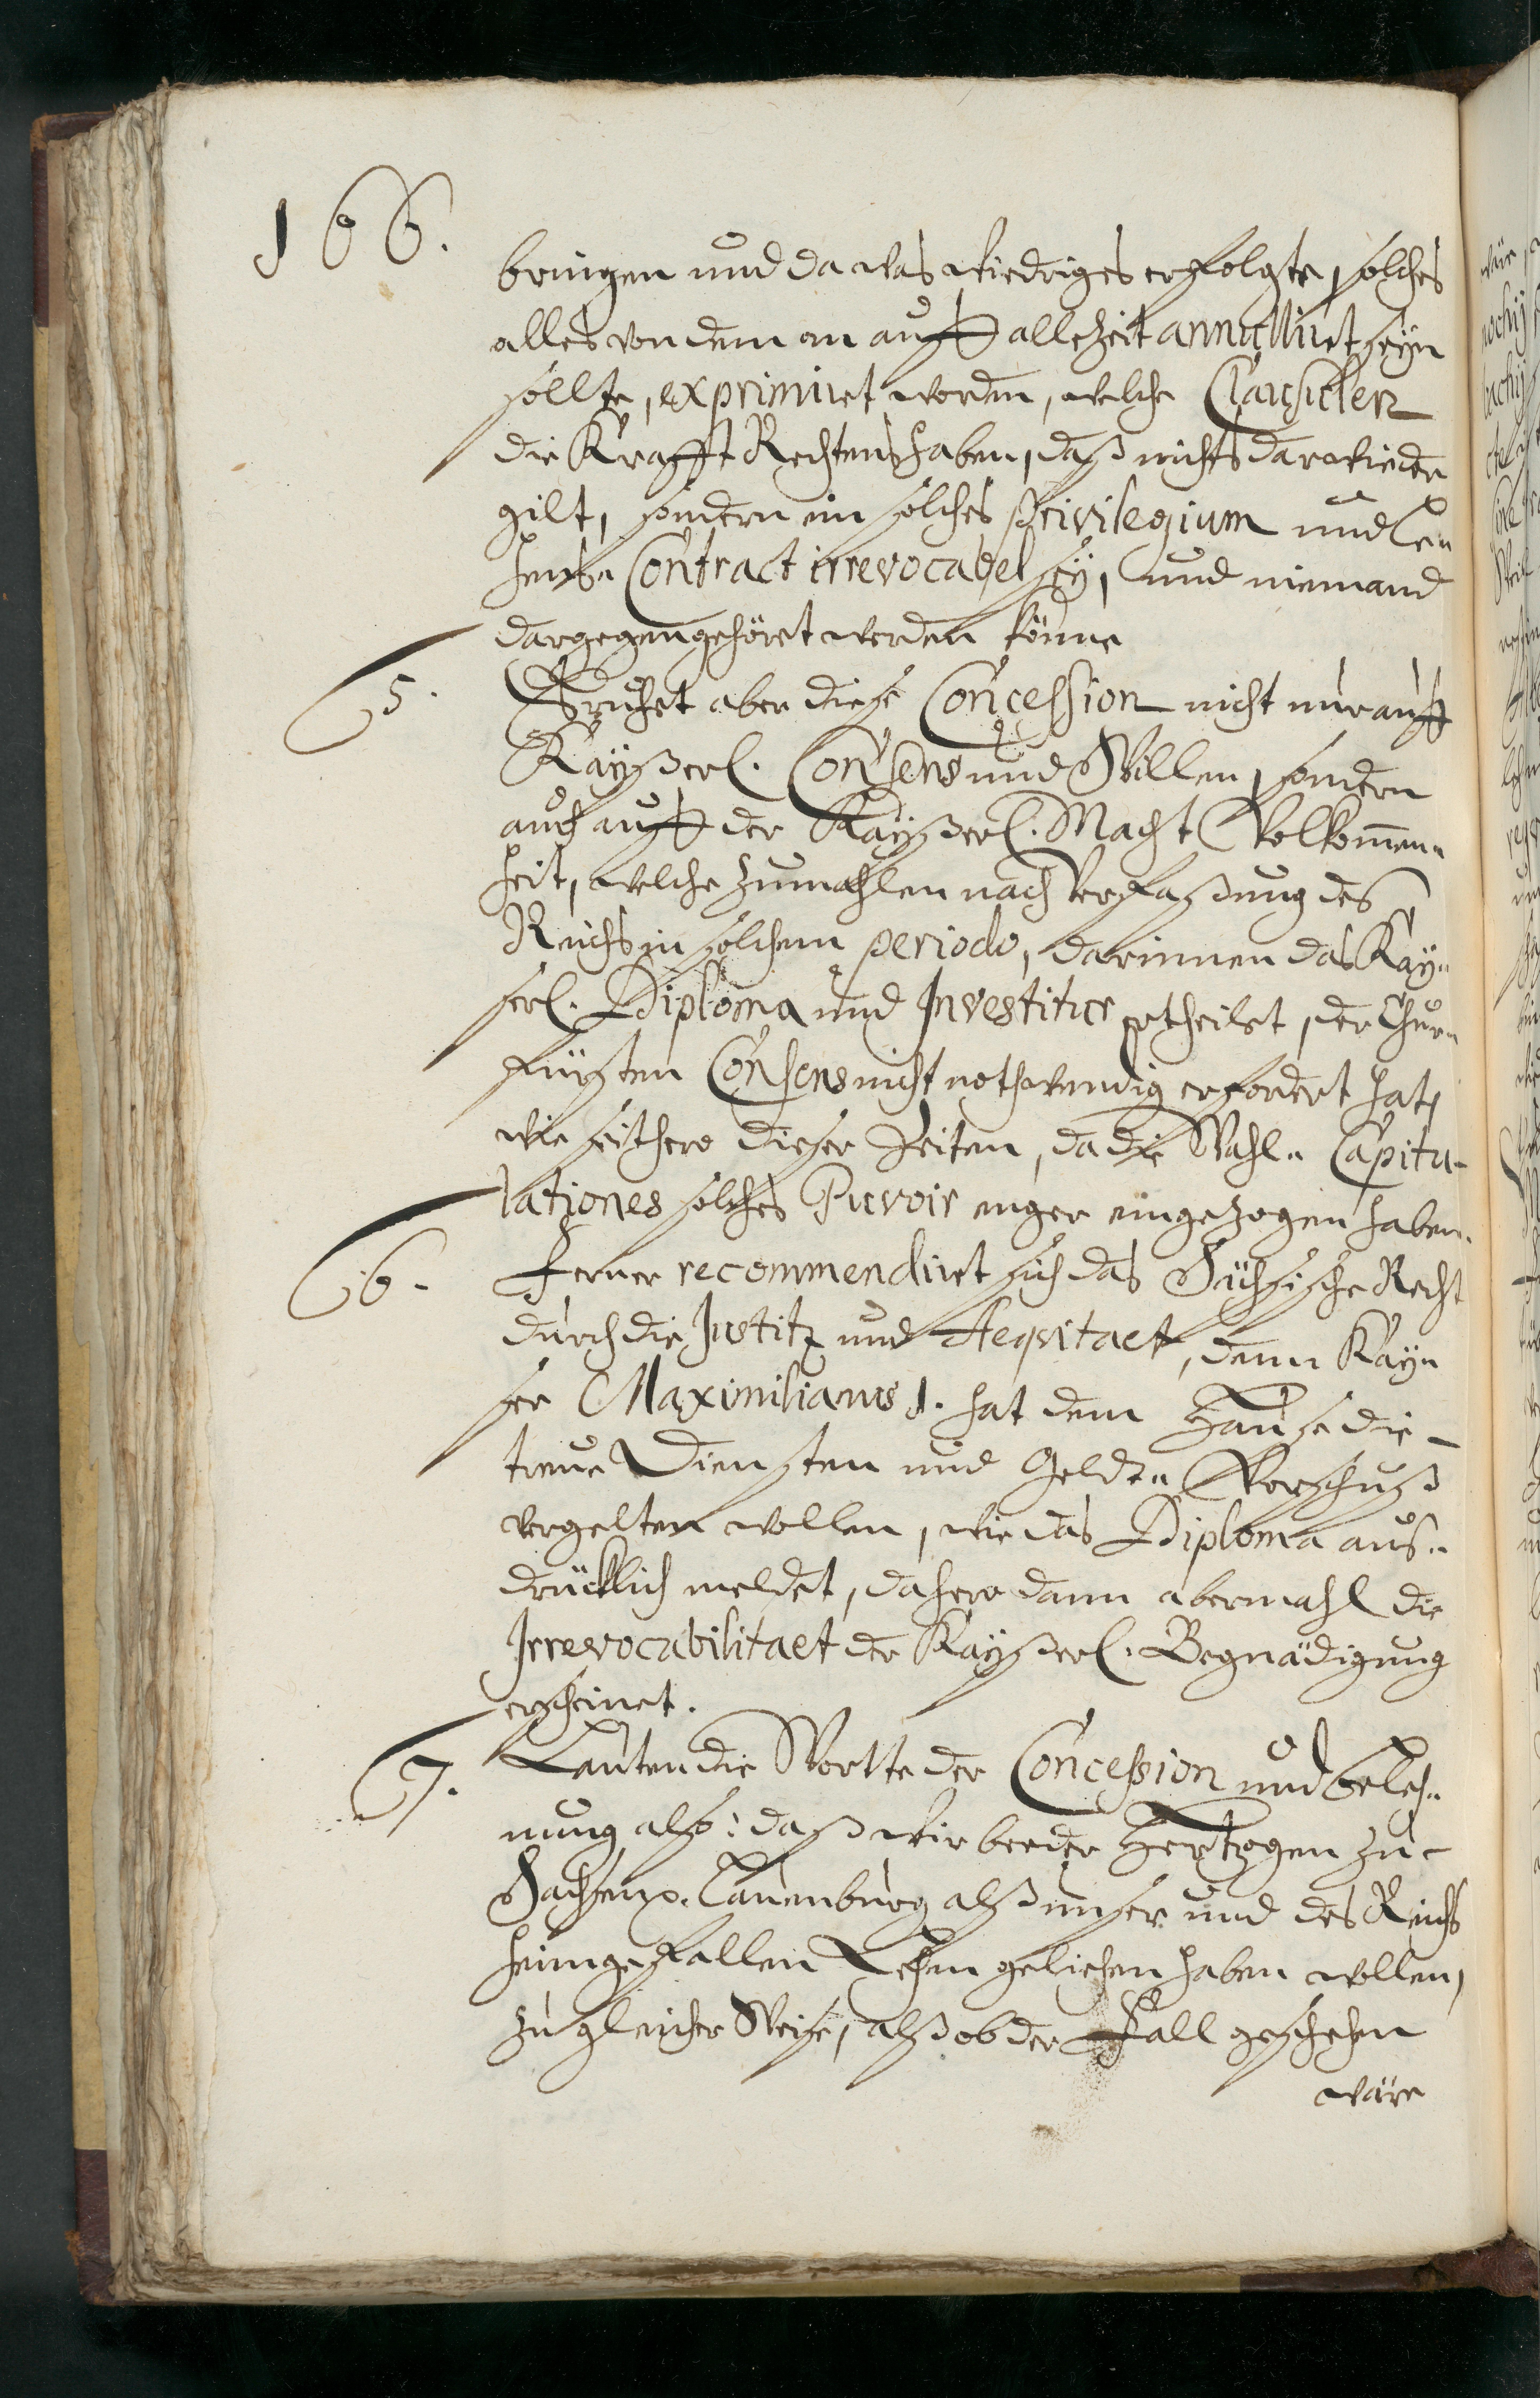 166.
bringen und da was wiedriges erfolgte, solches
alles von dem an auff allezeit annulliret seyn
sollte, exprimiret worden, welche Clausulen
die Krafft Rechtens haben, daß nichts darwieder
gilt, sondern ein solches Privilegium und Le„
hens„ Contract irrevocabel sey, und niemand
dargegen gehöret werden könne
5. Beruhet aber diese Concession nicht nur auff
Kayßerl. Consens und Willen, sondern
auch auff der Kayßerl. Macht Volkom̃en„
heit, welche zumahlen nach Verfaßung des
Reichs in solchem periodo, darinnen das Kay„
serl. Diploma und Investitur ertheilet, der Chur„
fürsten Consens nicht nothwendig erfordert hat,
wie seithero dieser Zeiten, da die Wahl„ Capitu-
lationes solches Puvoir enger eingezogen haben.
6. Ferner recommendiret sich das Sächsische Recht
durch die Justitz und Aeqvitaet, denn Kay„
ser Maximilianus 1. hat dem Hause die
treue Diensten und Geldt„ Vorschuß
vergelten wollen, wie das Diploma aus„
drücklich meldet, dahero dann abermahl die
Irrevocabilitaet der Kayßerl. Begnädigung
erscheinet.
7. Lauten die Wortte der Concession und Beleh„
nung also: daß wir beeder Hertzogen zu
Sachsen Lauenburg alß unser und des Reichs
heimgefallen Lehen geliehen haben wollen,
zu gleicher Weise, alß ob der Fall geschehen
wäre